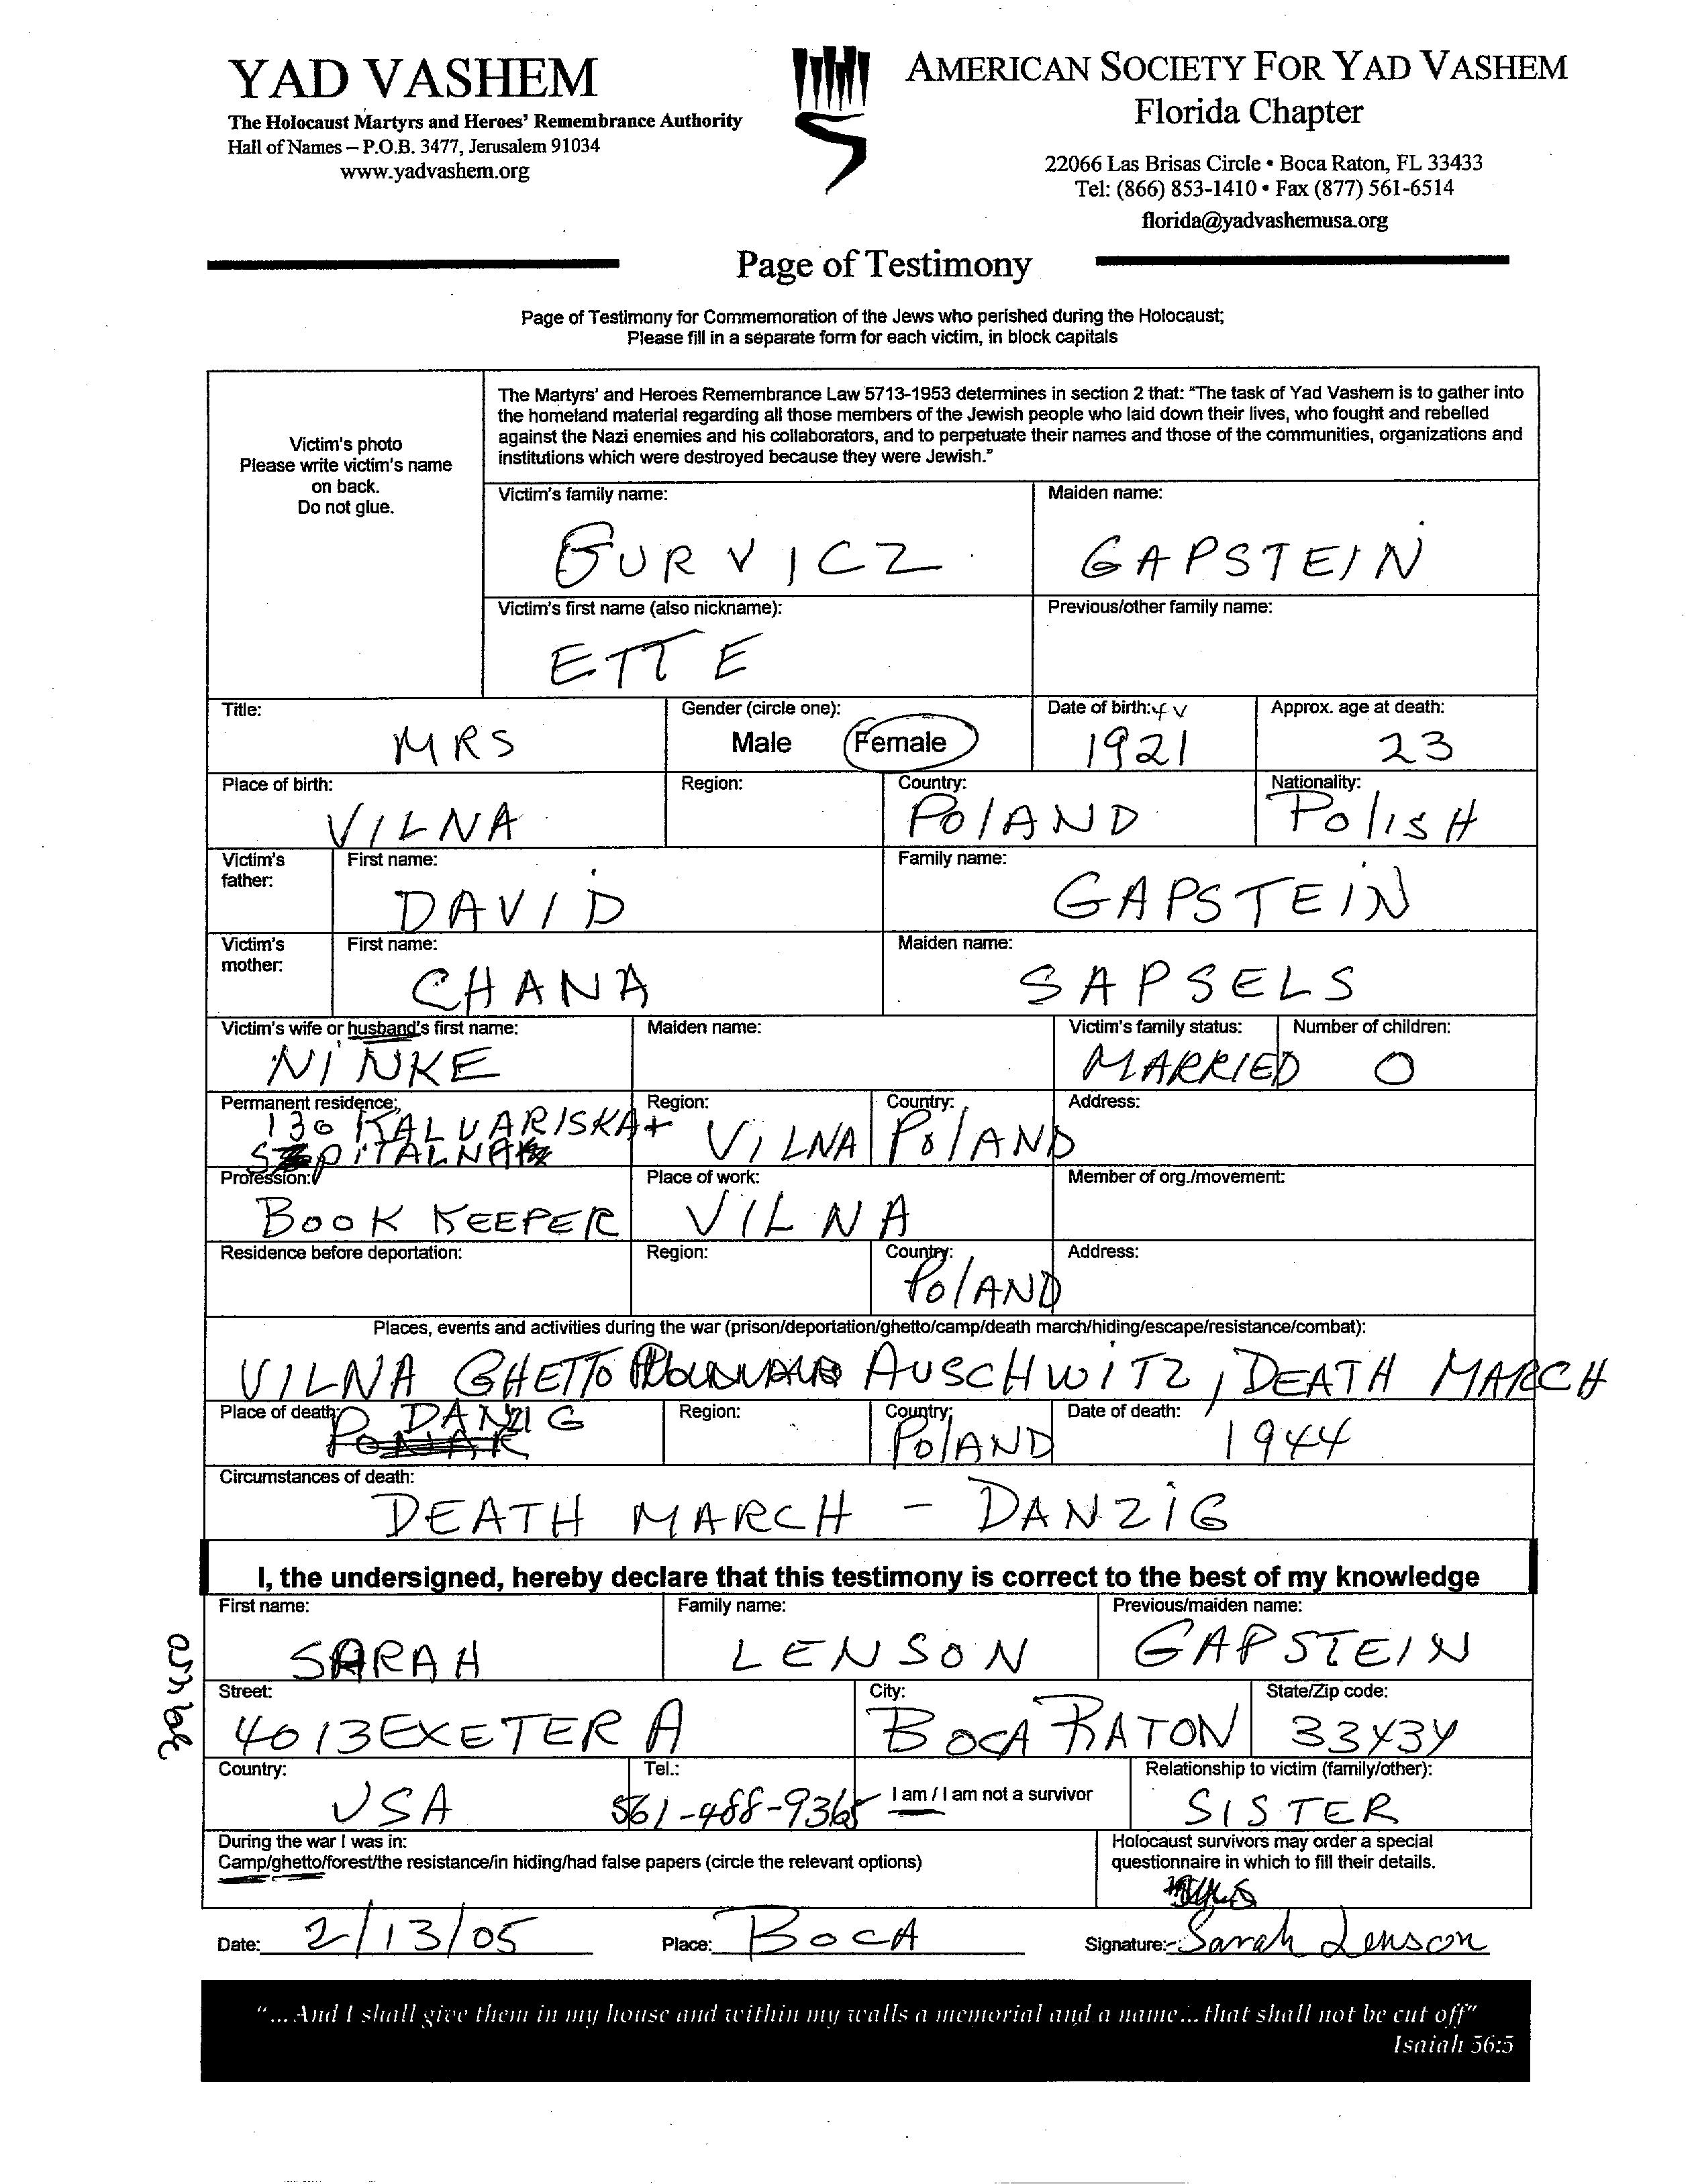 YAD VASHEM
The Holocaust Martyrs and Heroes' Remembrance Authority
Hall of Names – P.O.B. 3477, Jerusalem 91034
www.yadvashem.org
AMERICAN SOCIETY FOR YAD VASHEM
Florida Chapter
22066 Las Brisas Circle • Boca Raton, FL 33433
Tel: (866) 853-1410 • Fax (877) 561-6514
florida@yadvashemusa.org
Page of Testimony
Page of Testimony for Commemoration of the Jews who perished during the Holocaust;
Please fill in a separate form for each victim, in block capitals
Victim's photo
Please write victim's name
on back.
Do not glue.
The Martyrs' and Heroes Remembrance Law 5713-1953 determines in section 2 that: "The task of Yad Vashem is to gather into
the homeland material regarding all those members of the Jewish people who laid down their lives, who fought and rebelled
against the Nazi enemies and his collaborators, and to perpetuate their names and those of the communities, organizations and
institutions which were destroyed because they were Jewish."
Victim's family name: Maiden name:
GURVICZ GAPSTEIN
Victim's first name (also nickname): Previous/other family name:
ETTE
Title: Gender (circle one): Date of birth: Approx. age at death:
MRS Male Female 1921 23
Place of birth: Region: Country: Nationality:
VILNA PolAND PolisH
Victim's father: First name: Family name:
DAVID GAPSTEIN
Victim's mother: First name: Maiden name:
CHANA SAPSELS
Victim's wife or husband's first name: Maiden name: Victim's family status: Number of children:
NINKE MARRIED 0
Permanent residence: Region: Country: Address:
130 KALVARISKA+ VILNA PolAND
Profession: Place of work: Member of org./movement:
BOOK KEEPER VILNA
Residence before deportation: Region: Country: Address:
PolAND
Places, events and activities during the war (prison/deportation/ghetto/camp/death march/hiding/escape/resistance/combat):
VILNA GHETTO AUSCHWITZ, DEATH MARCH
Place of death: Region: Country: Date of death:
DANZIG PolAND 1944
Circumstances of death:
DEATH MARCH - DANZIG
I, the undersigned, hereby declare that this testimony is correct to the best of my knowledge
First name: Family name: Previous/maiden name:
SARAH LENSON GAPSTEIN
Street: City: State/Zip code:
4013 EXETER A BOCA RATON 33434
Country: Tel.: I am / I am not a survivor Relationship to victim (family/other):
USA 561-488-9365 SISTER
During the war I was in:
Camp/ghetto/forest/the resistance/in hiding/had false papers (circle the relevant options)
Holocaust survivors may order a special
questionnaire in which to fill their details.
Date: 2/13/05 Place: BOCA Signature: Sarah Lenson
"...And I shall give them in my house and within my walls a memorial and a name...that shall not be cut off"
Isaiah 56:5